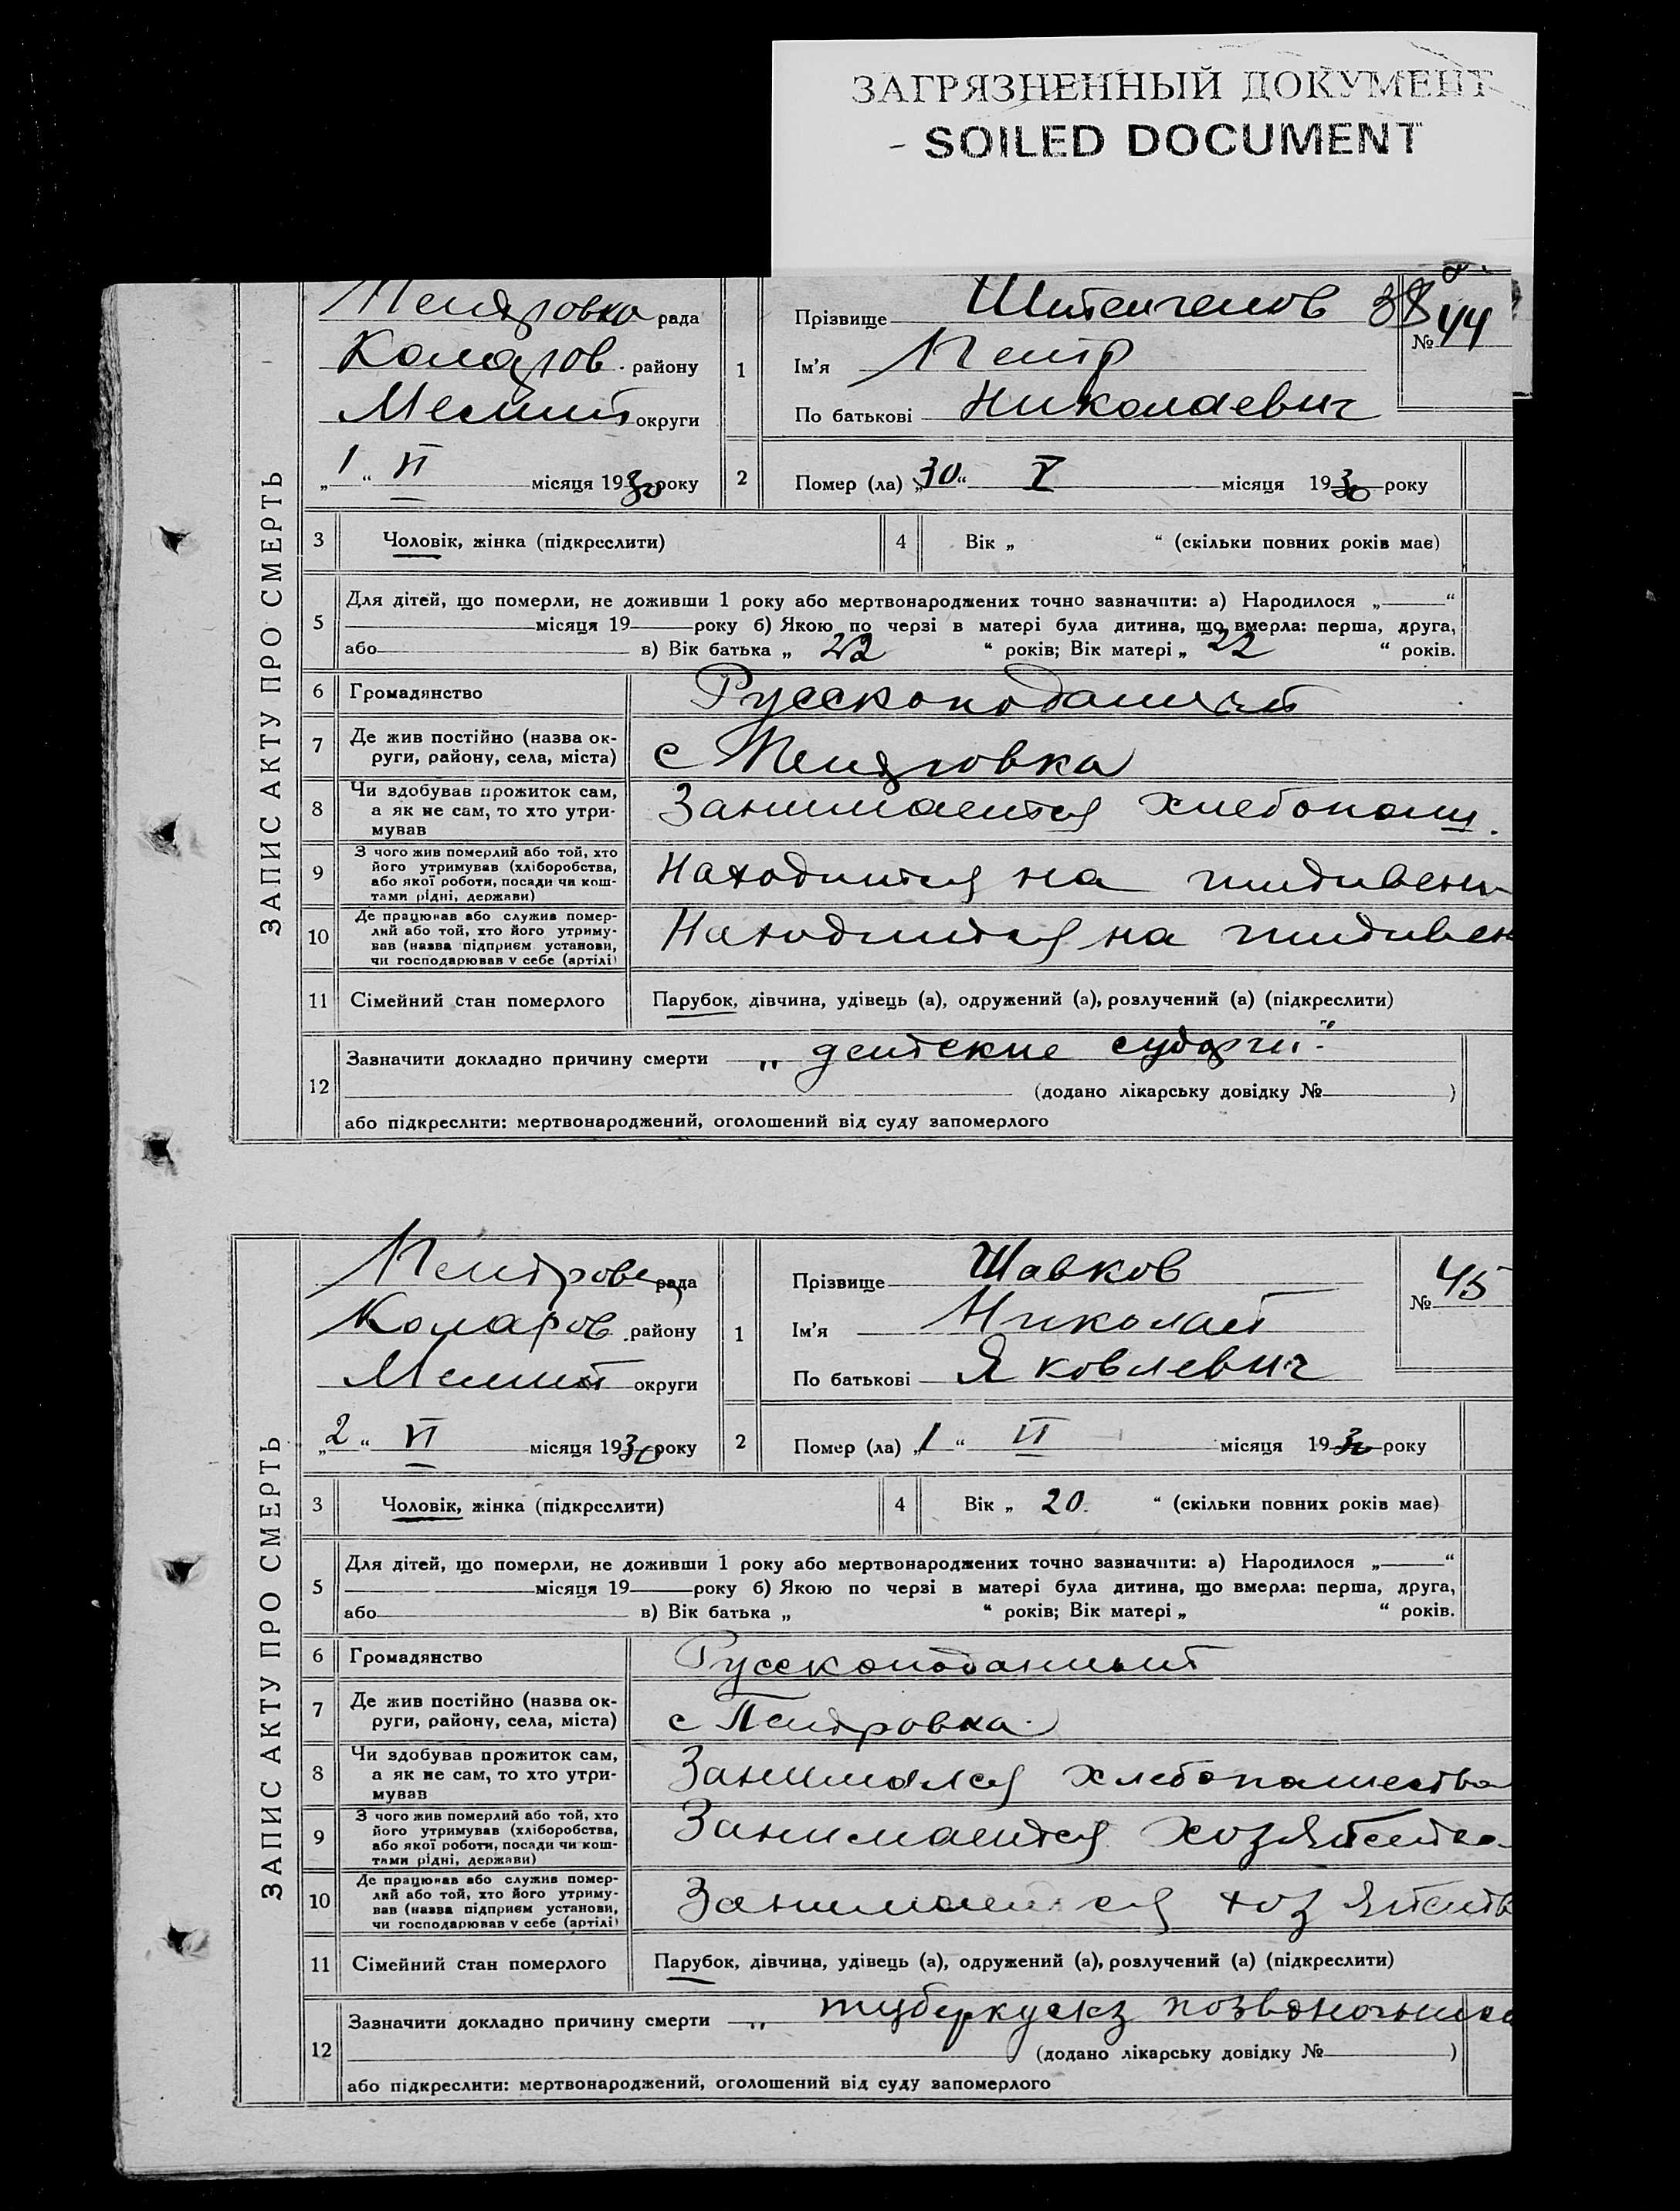 ЗАГРЯЗНЕННЫЙ ДОКУМЕНТ
- SOILED DOCUMENT
ЗАПИС АКТУ ПРО СМЕРТЬ
Петровка рада
Коларов. району
Мелит округи
„1“ VI місяця 1930 року
1
Прізвище
Ім’я Петр
По батькові Николаевич
№ 44
2
Помер (ла) „30“ V місяця 1930 року
3
Чоловік, жінка (підкреслити)
4
Вік „ “ (скільки повних років має)
5
Для дітей, що померли, не доживши 1 року або мертвонароджених точно зазначити: а) Народилося „ “
місяця 19 року б) Якою по черзі в матері була дитина, що вмерла: перша, друга,
або в) Вік батька „ 22 “ років; Вік матері „ 22 “ років.
6
Громадянство
Русскоподаный
7
Де жив постійно (назва ок-
руги, району, села, міста)
с Петровка
8
Чи здобував прожиток сам,
а як не сам, то хто утри-
мував
Занимается хлебопаш.
9
З чого жив померлий або той, хто
його утримував (хліборобства,
або якої роботи, посади чи кош-
тами рідні, держави)
Находится на иждивени
10
Де працював або служив помер-
лий або той, хто його утриму-
вав (назва підприєм установи,
чи господарював у себе (артілі)
Находится на иждивен
11
Сімейний стан померлого
Парубок, дівчина, удівець (а), одружений (а), розлучений (а) (підкреслити)
12
Зазначити докладно причину смерти „детские судорги“
(додано лікарську довідку № )
або підкреслити: мертвонароджений, оголошений від суду запомерлого
ЗАПИС АКТУ ПРО СМЕРТЬ
Петровк рада
Коларов. району
Мелит округи
„2“ VI місяця 1930 року
1
Прізвище Шавков
Ім’я Николай
По батькові Яковлевич
№ 45
2
Помер (ла) „1“ VI місяця 1930 року
3
Чоловік, жінка (підкреслити)
4
Вік „ 20. “ (скільки повних років має)
5
Для дітей, що померли, не доживши 1 року або мертвонароджених точно зазначити: а) Народилося „ “
місяця 19 року б) Якою по черзі в матері була дитина, що вмерла: перша, друга,
або в) Вік батька „ “ років; Вік матері „ “ років.
6
Громадянство
Русскоподанный
7
Де жив постійно (назва ок-
руги, району, села, міста)
с Петровка.
8
Чи здобував прожиток сам,
а як не сам, то хто утри-
мував
Занимался хлебопашество
9
З чого жив померлий або той, хто
його утримував (хліборобства,
або якої роботи, посади чи кош-
тами рідні, держави)
Занимается хозяйство
10
Де працював або служив помер-
лий або той, хто його утриму-
вав (назва підприєм установи,
чи господарював у себе (артілі)
Занимается хозяйств
11
Сімейний стан померлого
Парубок, дівчина, удівець (а), одружений (а), розлучений (а) (підкреслити)
12
Зазначити докладно причину смерти „ туберкулез позвоночника
(додано лікарську довідку № )
або підкреслити: мертвонароджений, оголошений від суду запомерлого